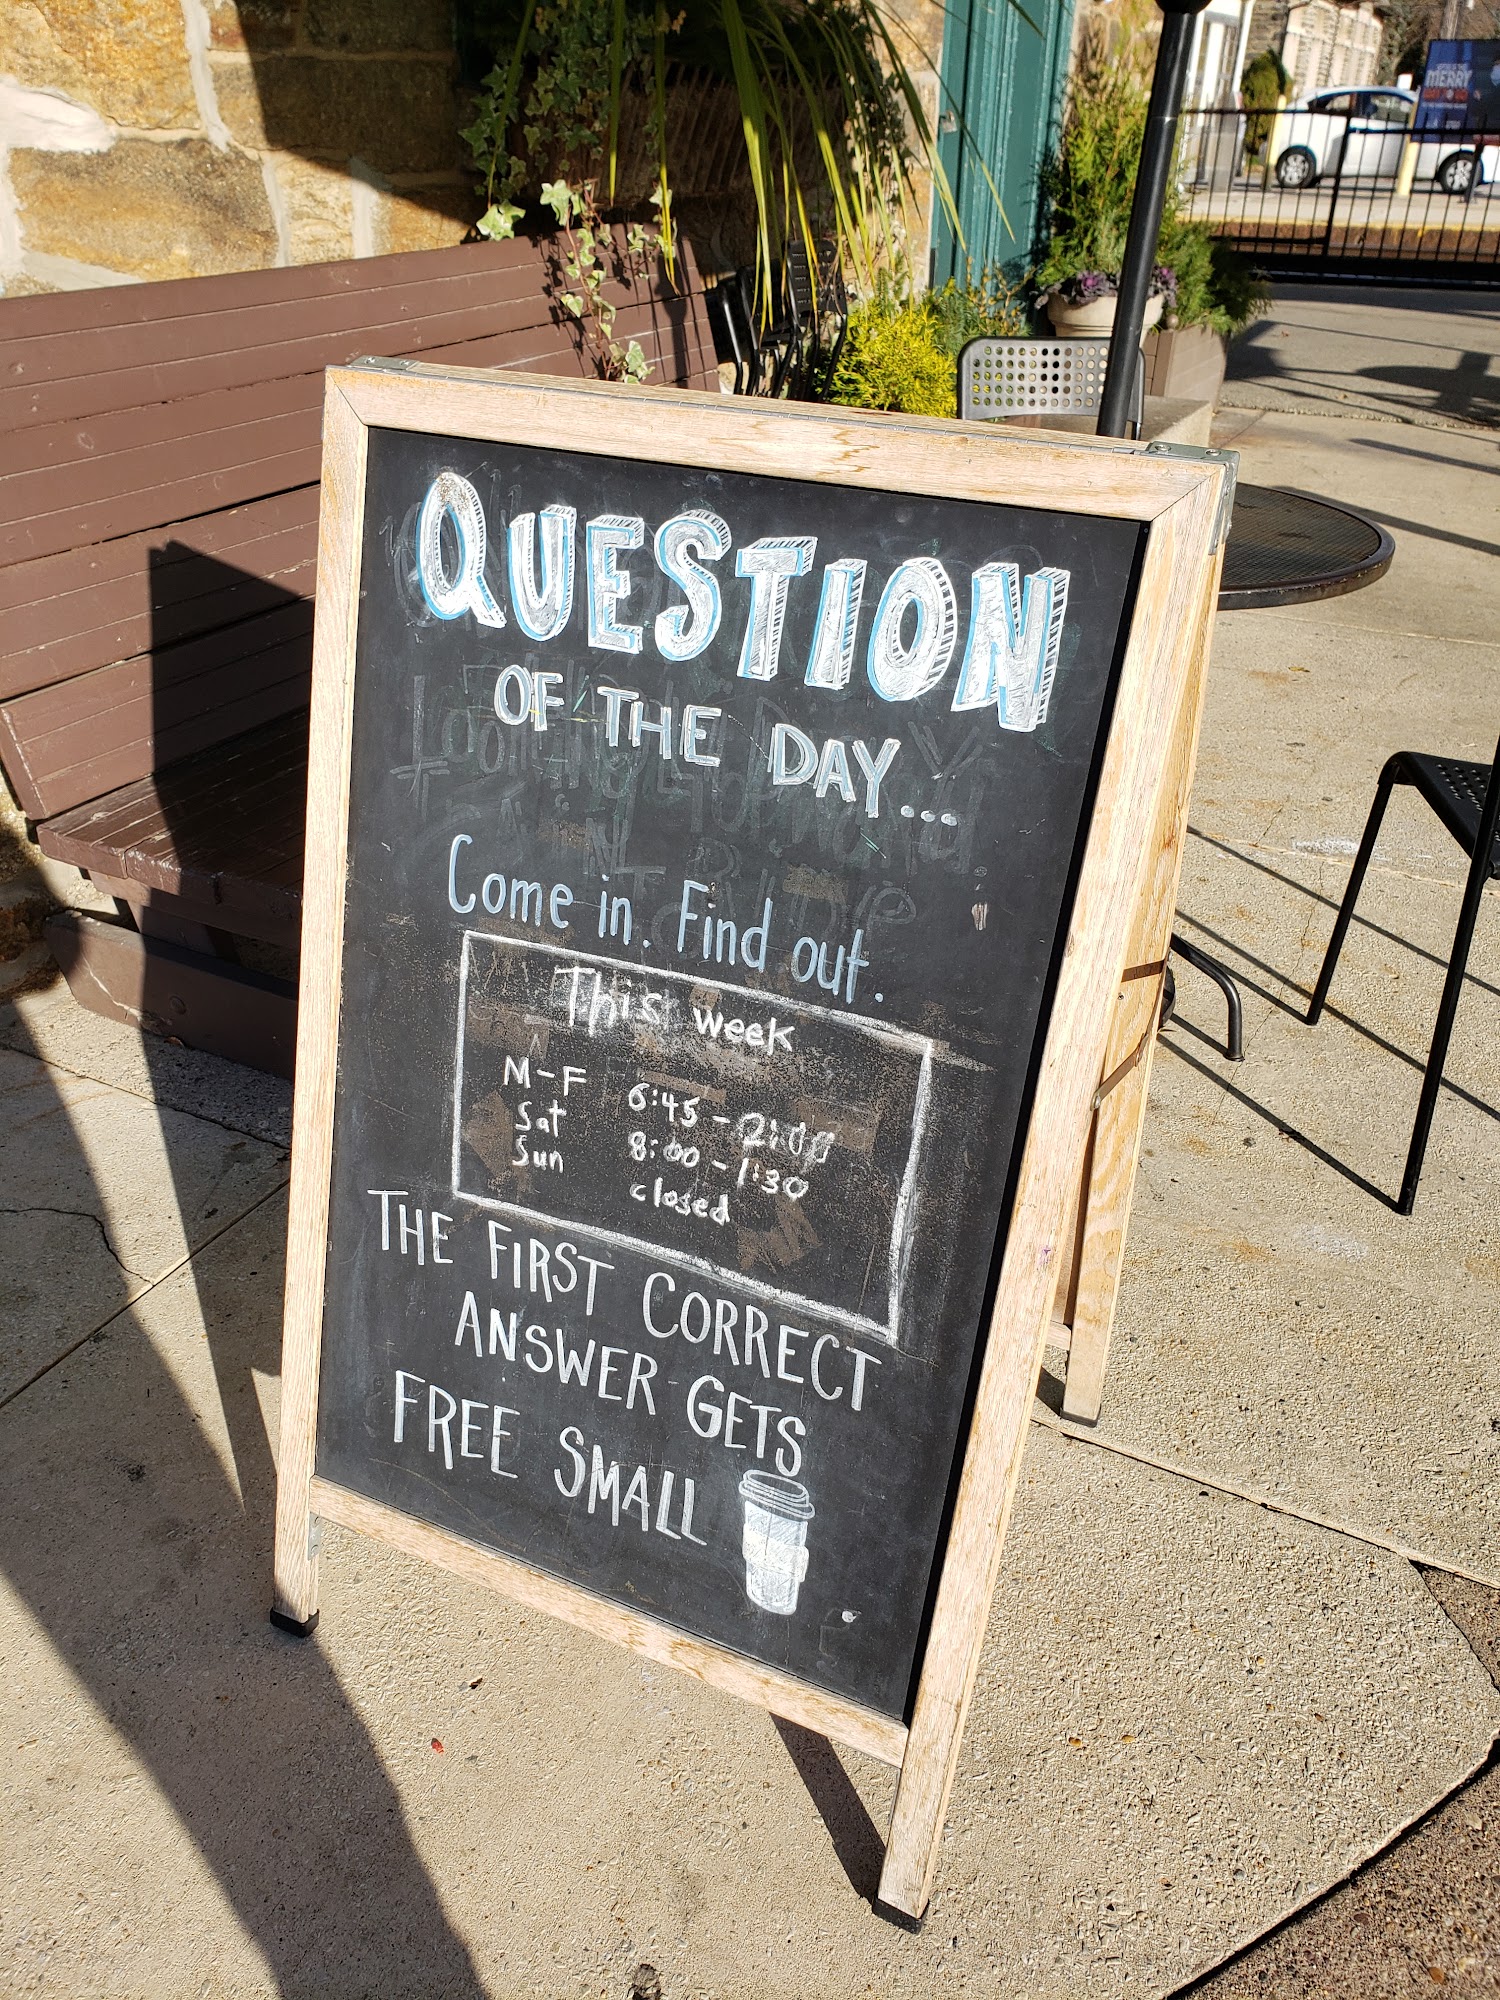 QUESTION
OF THE DAY...
Come in. Find out.
This week
M-F 6:45 - 2:00
Sat 8:00 - 1:30
Sun closed
THE FIRST CORRECT
ANSWER GETS
FREE SMALL
MERRY